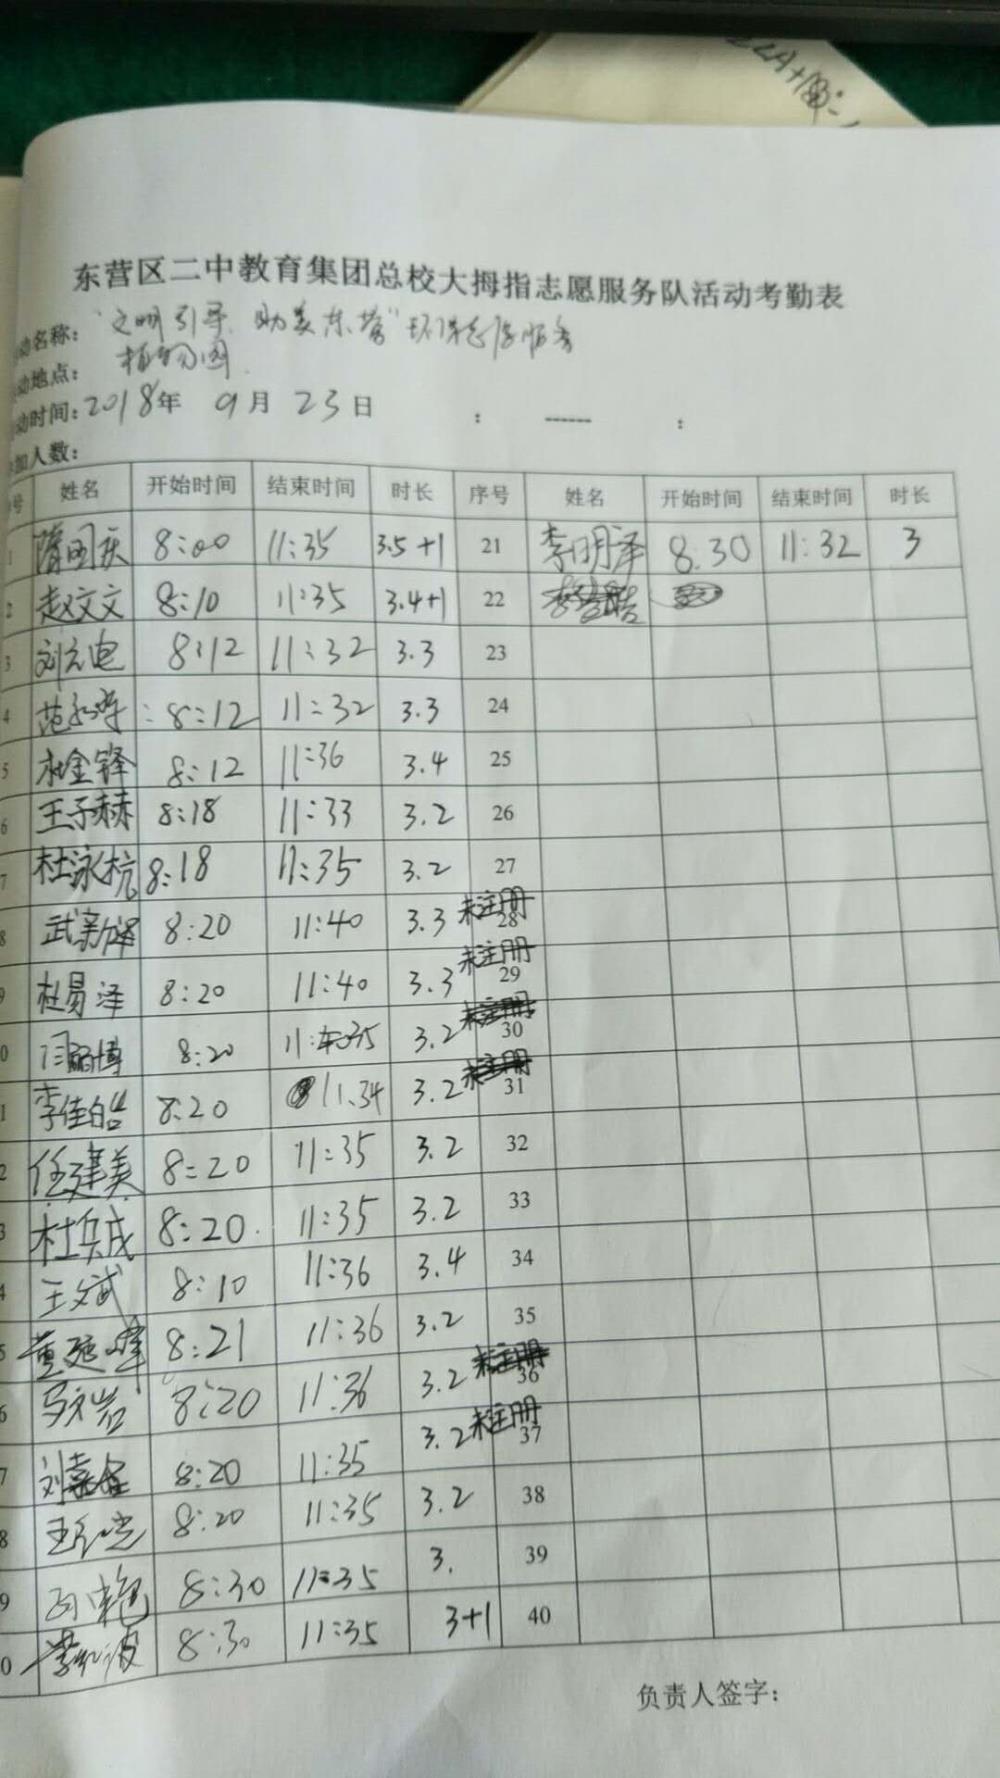 东营区二中教育集团总校大拇指志愿服务队活动考勤表
动名称： "文明引导 助美东营"环保志愿服务
动地点： 植物园
动时间：2018年 9月 23日 : ------ :
加人数：
号 姓名 开始时间 结束时间 时长 序号 姓名 开始时间 结束时间 时长
1 隋国庆 8:00 11:35 3.5+1 21 李明泽 8:30 11:32 3
2 赵文文 8:10 11:35 3.4+1 22
3 刘元电 8:12 11:32 3.3 23
4 8:12 11:32 3.3 24
5 杜金锋 8:12 11:36 3.4 25
6 王子赫 8:18 11:33 3.2 26
7 杜泳杭 8:18 11:35 3.2 27
8 武新泽 8:20 11:40 3.3 未注册 28
9 杜易泽 8:20 11:40 3.3 未注册 29
0 闫 博 8:20 11:35 3.2 30
1 李佳皓 8:20 11.34 3.2 31
2 任建美 8:20 11:35 3.2 32
3 杜兵成 8:20 11:35 3.2 33
4 王文斌 8:10 11:36 3.4 34
5 董延峰 8:21 11:36 3.2 35
6 马文岩 8:20 11:36 3.2 36
7 刘 8:20 11:35 3.2 未注册 37
8 王 8:20 11:35 3.2 38
9 孙 艳 8:30 11:35 3. 39
0 波 8:30 11:35 3+1 40
负责人签字：